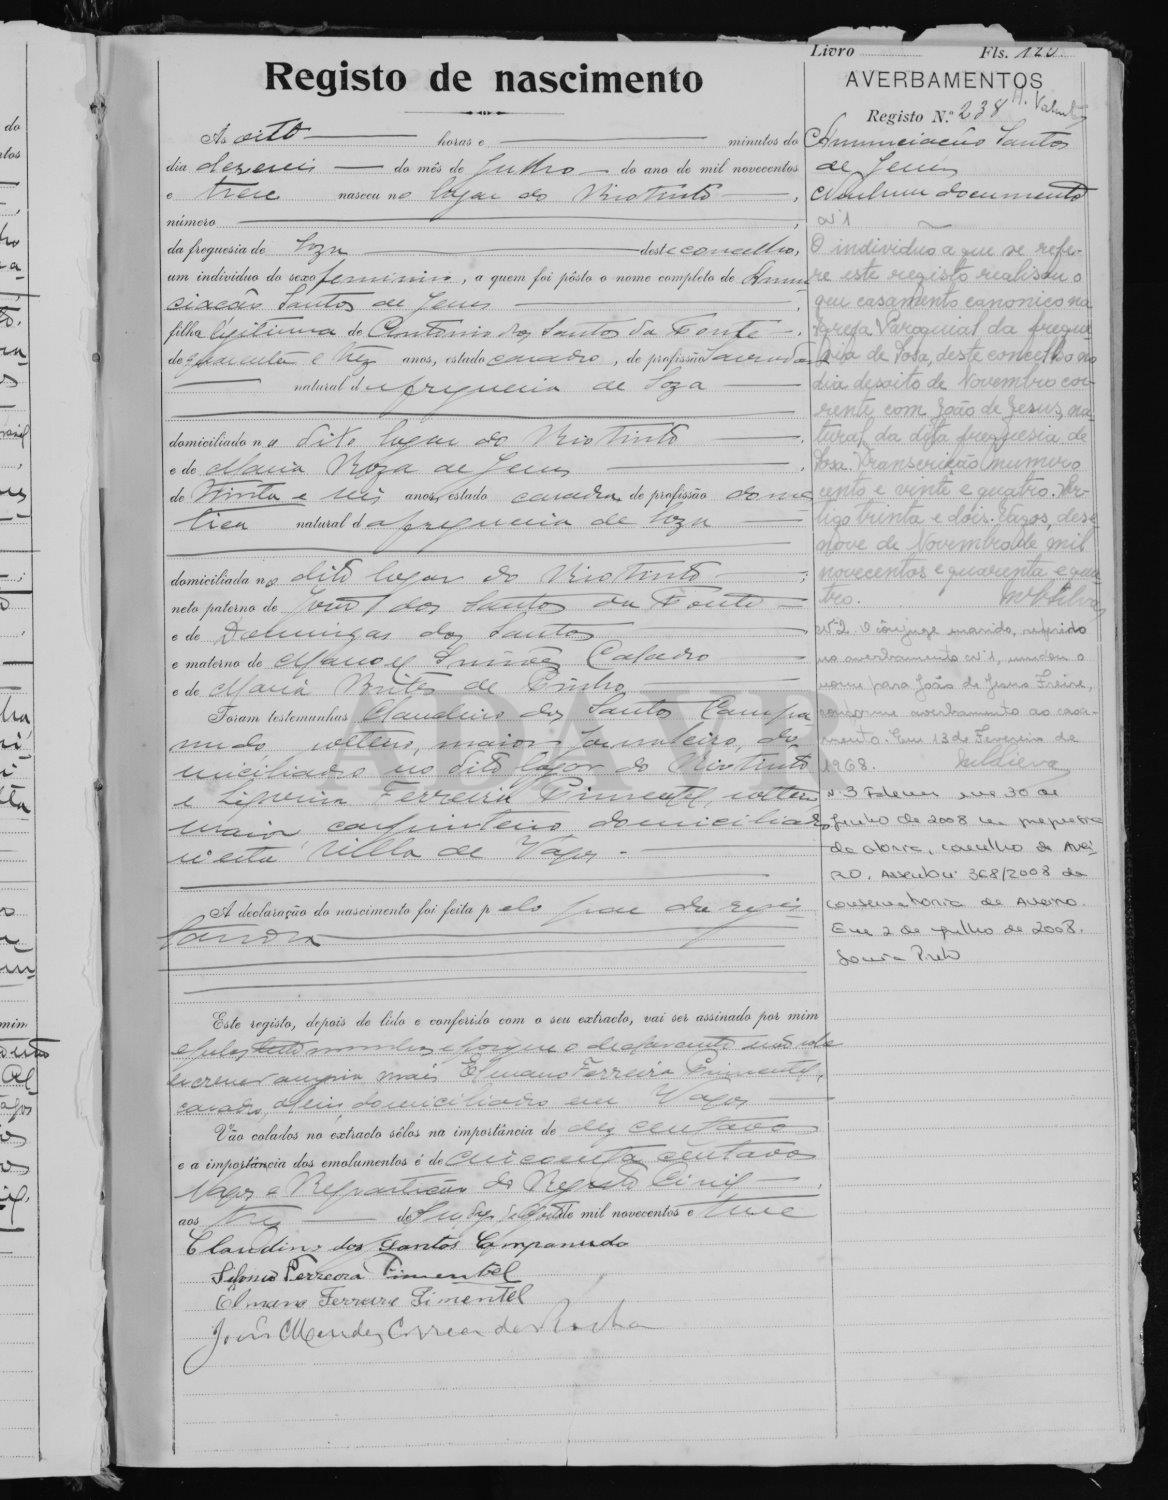 Livro Fls. 120
Registo de nascimento
Às oito horas e minutos do
dia dezeseis do mês de Julho do ano de mil novecentos
e treze nasceu no logar do Rio tinto,
número
da freguesia de Soza deste concelho,
um individuo do sexo feminino, a quem foi pôsto o nome completo de Annun
ciacão Santos de Jesus
filha legitima de Antonio dos Santos da Fonte,
de quarenta e tres anos, estado casado, de profissão
natural da freguesia de Soza
domiciliado no dito logar do Rio tinto,
e de Maria Roza de Jesus,
de trinta e seis anos, estado casada, de profissão domes
tica natural da freguesia de Soza
domiciliada no dito logar do Rio tinto;
neto paterno de José dos Santos da Fonte
e de Domingas dos Santos
e materno de Manoel Simões Calado
e de Maria Brites de Pinho
Foram testemunhas Claudino dos Santos Campa
nudo, solteiro, maior, do
miciliado no dito logar do Rio tinto
e Ferreira Pimentel, solteiro
maior carpinteiro domiciliado
n'esta Villa de Vagos.
A declaração do nascimento foi feita pelo pae da regis
tanda
Este registo, depois de lido e conferido com o seu extracto, vai ser assinado por mim
e pelas testemunhas e porque o declarante não sabe
escrever assigna mais Elmano Ferreira Pimentel,
casado, domiciliado em Vagos
Vão colados no extracto sêlos na importância de dez centavos
e a importância dos emolumentos é de cincoenta centavos
Vagos e Repartição do Registo Civil,
aos tres de Agosto de mil novecentos e treze
Claudino dos Santos Campanudo
Ferreira Pimentel
Elmano Ferreira Pimentel
José Mendes Correa da Rocha
AVERBAMENTOS
Registo N.º 238
Annunciacão Santos
de Jesus
Nenhum documento
Nº 1
O individuo a que se refe-
re este registo realisou o
seu casamento canonico na
Igreja Paroquial da fregue-
sia de Sosa, deste concelho no
dia desoito de Novembro cor-
rente com João de Jesus, na-
tural da dita freguesia de
Sosa. Transcrição numero
cento e vinte e quatro. Ar-
tigo trinta e dois. Vagos, dese
nove de Novembro de mil
novecentos e quarenta e qua-
tro. Silva
Nº 2. O cônjuge marido, referido
no averbamento nº 1, mudou o
nome para João de Jesus Freire,
conforme averbamento ao casa-
mento. Em 13 de Fevereiro de
1968.
N. 3 Faleceu em 30 de
Junho de 2008 na freguesia
da Glória, concelho de Avei-
ro. Assento nº 368/2008 da
Conservatória de Aveiro.
Em 2 de julho de 2008.
ADAVR